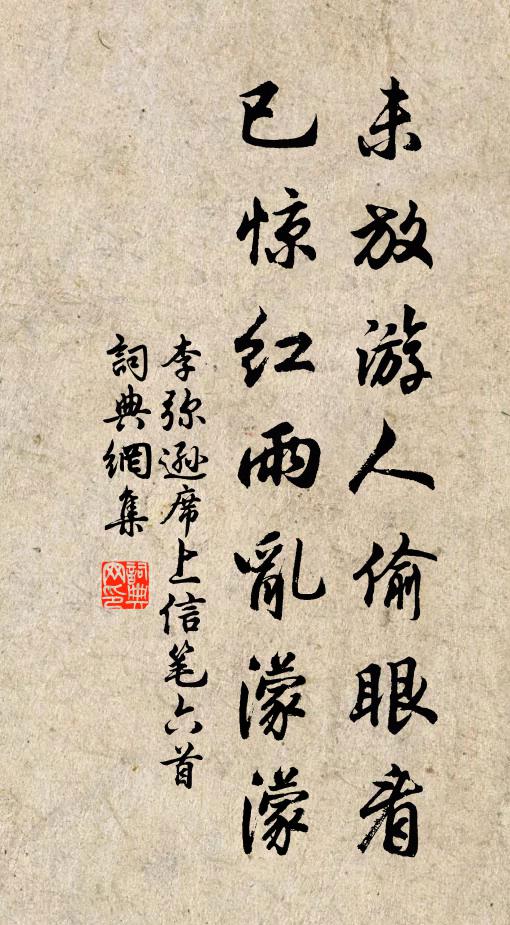 未放游人偷眼看
已惊红雨亂濛濛
李弥遜席上信笔六首
詞典網集
詞典网印